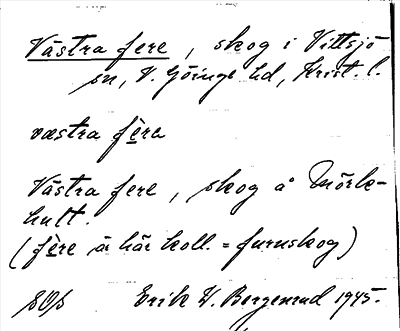 Västra fere, skog i Vittsjö
sn, V. Göinge hd, Krist. l.
væstra fèra
Västra fere, skog å Mörk-
hult.
(fère är här koll. = furuskog)
Erik W. Bergenrud 1945.